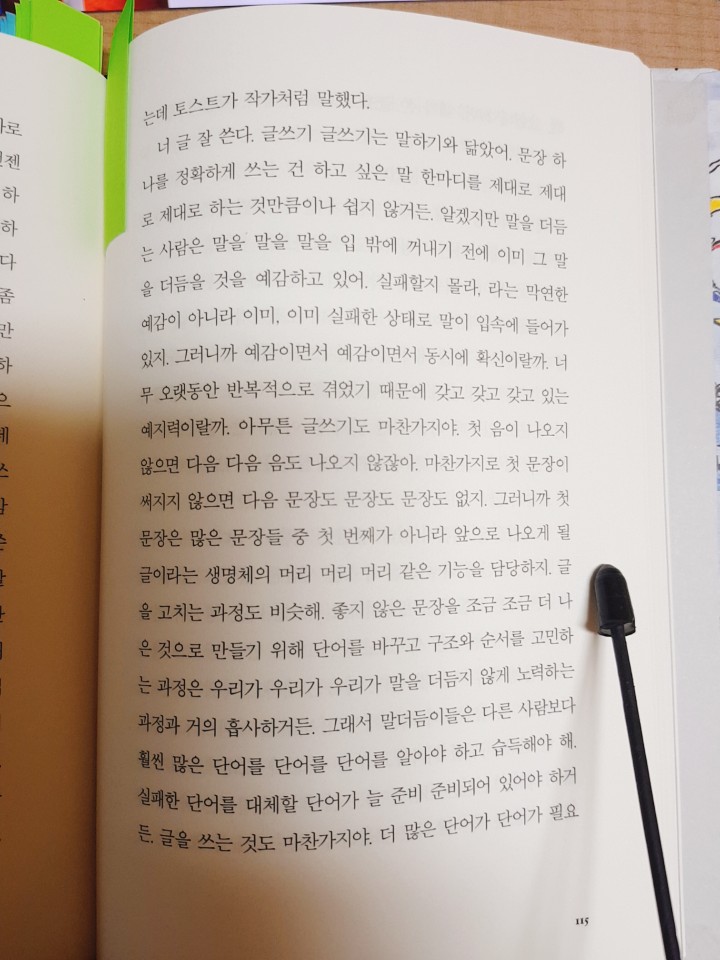 는데 토스트가 작가처럼 말했다.
너 글 잘 쓴다. 글쓰기 글쓰기는 말하기와 닮았어. 문장 하
나를 정확하게 쓰는 건 하고 싶은 말 한마디를 제대로 제대
로 제대로 하는 것만큼이나 쉽지 않거든. 알겠지만 말을 더듬
는 사람은 말을 말을 말을 입 밖에 꺼내기 전에 이미 그 말
을 더듬을 것을 예감하고 있어. 실패할지 몰라, 라는 막연한
예감이 아니라 이미, 이미 실패한 상태로 말이 입속에 들어가
있지. 그러니까 예감이면서 예감이면서 동시에 확신이랄까. 너
무 오랫동안 반복적으로 겪었기 때문에 갖고 갖고 갖고 있는
예지력이랄까. 아무튼 글쓰기도 마찬가지야. 첫 음이 나오지
않으면 다음 다음 음도 나오지 않잖아. 마찬가지로 첫 문장이
써지지 않으면 다음 문장도 문장도 문장도 없지. 그러니까 첫
문장은 많은 문장들 중 첫 번째가 아니라 앞으로 나오게 될
글이라는 생명체의 머리 머리 머리 같은 기능을 담당하지. 글
을 고치는 과정도 비슷해. 좋지 않은 문장을 조금 조금 더 나
은 것으로 만들기 위해 단어를 바꾸고 구조와 순서를 고민하
는 과정은 우리가 우리가 우리가 말을 더듬지 않게 노력하는
과정과 거의 흡사하거든. 그래서 말더듬이들은 다른 사람보다
훨씬 많은 단어를 단어를 단어를 알아야 하고 습득해야 해.
실패한 단어를 대체할 단어가 늘 준비 준비되어 있어야 하거
든. 글을 쓰는 것도 마찬가지야. 더 많은 단어가 단어가 필요
115